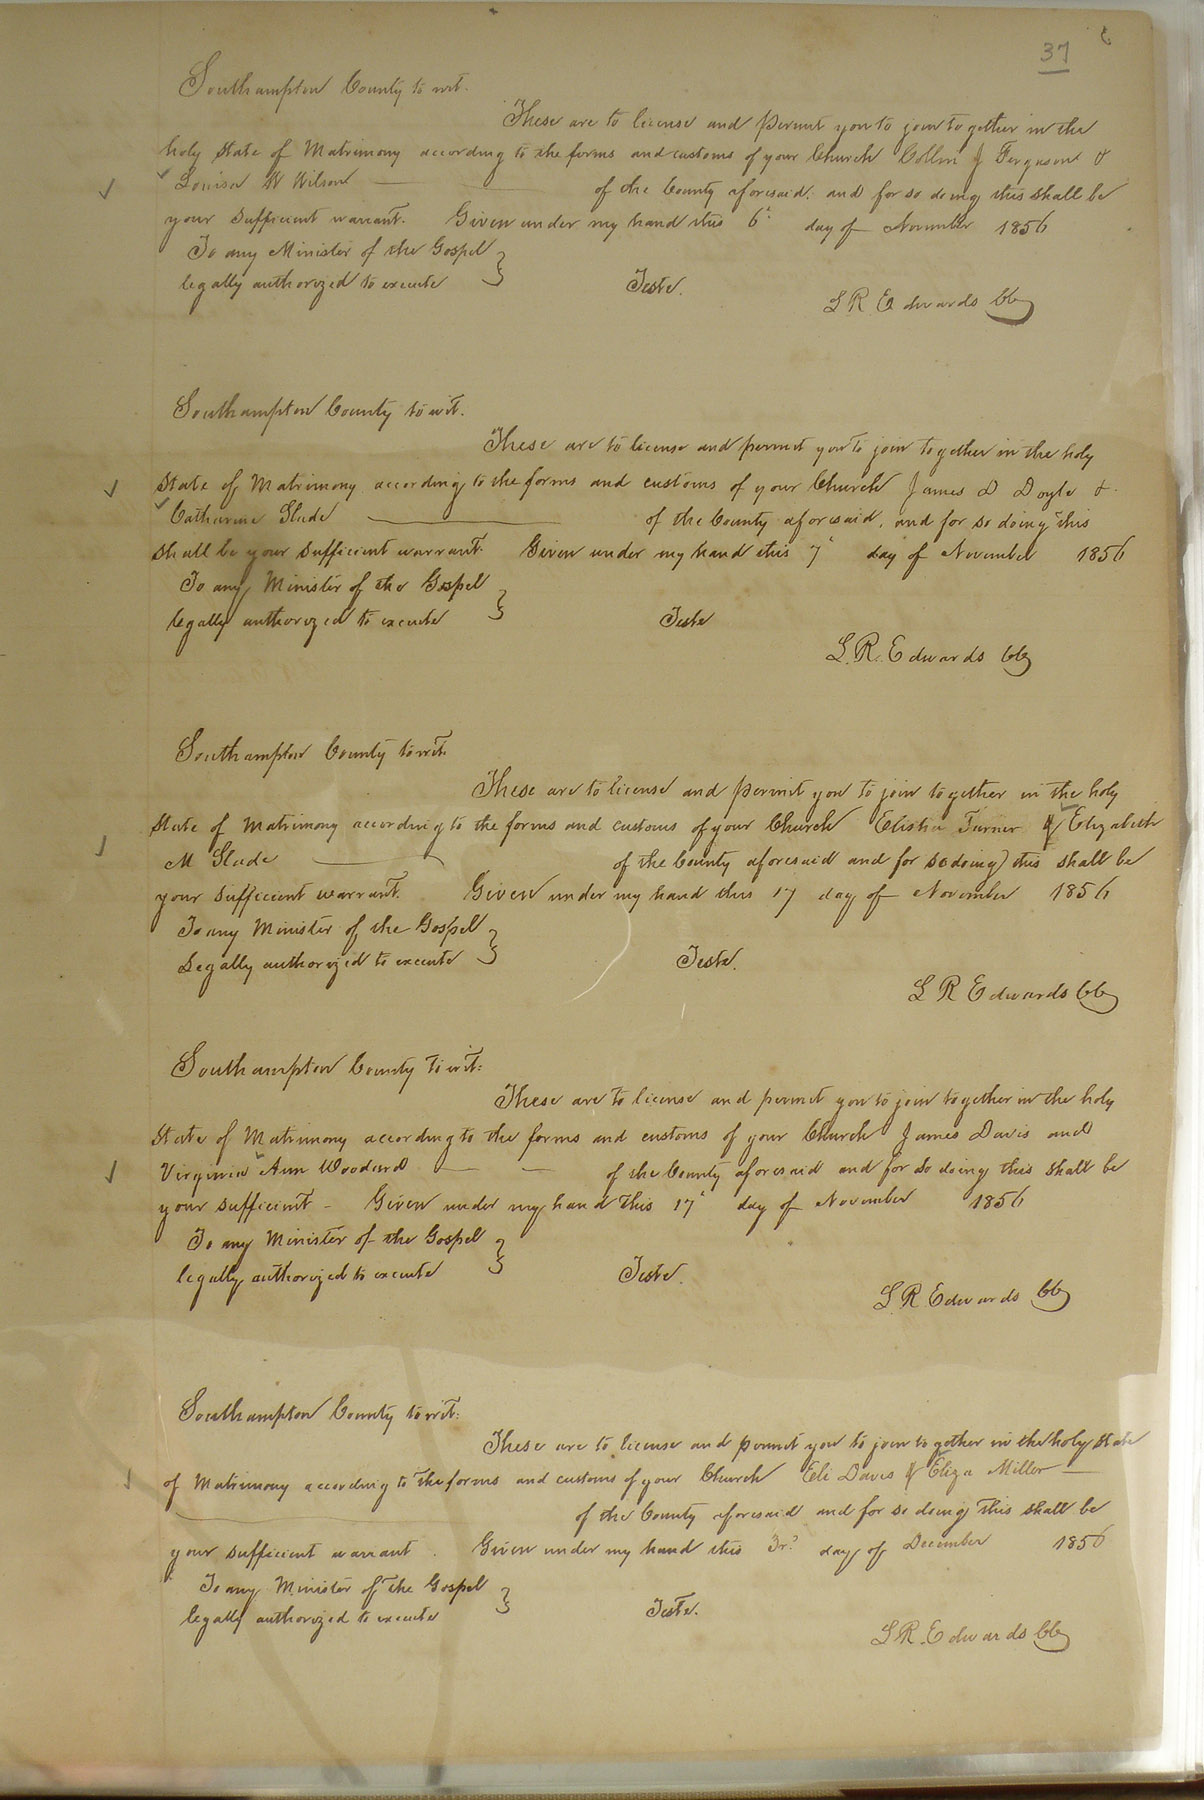 37
Southampton County to wit.
These are to license and permit you to join together in the
holy State of Matrimony according to the forms and customs of your Church Collin J Ferguson &
Louisa W Wilson — — of the County aforesaid: and for so doing this shall be
your sufficient warrant. Given under my hand this 6th day of November 1856
To any Minister of the Gospel
legally authorized to execute } Teste.
L R. Edwards Clk
Southampton County to wit.
These are to license and permit you to join together in the holy
State of Matrimony according to the forms and customs of your Church James D Doyle &
Catharine Slade — of the County aforesaid, and for so doing this
shall be your sufficient warrant. Given under my hand this 7th day of November 1856
To any Minister of the Gospel
legally authorized to execute } Teste
L. R. Edwards Clk
Southampton County to wit.
These are to license and permit you to join together in the holy
State of Matrimony according to the forms and customs of your Church Elisha Turner & Elizabeth
M Slade — of the County aforesaid and for so doing this shall be
your sufficient warrant. Given under my hand this 17 day of November 1856
To any Minister of the Gospel
Legally authorized to execute } Teste.
L R Edwards Clk
Southampton County to wit:
These are to license and permit you to join together in the holy
State of Matrimony according to the forms and customs of your Church James Davis and
Virginia Ann Woodard — — of the County aforesaid and for so doing this shall be
your sufficient - Given under my hand this 17th day of November 1856
To any Minister of the Gospel
legally authorized to execute } Teste.
L. R. Edwards Clk
Southampton County to wit:
These are to license and permit you to join together in the holy State
of Matrimony according to the forms and customs of your Church Eli Davis & Eliza Miller —
of the County aforesaid and for so doing this shall be
your sufficient warrant. Given under my hand this 3rd day of December 1856
To any Minister of the Gospel
legally authorized to execute } Teste.
L R. Edwards Clk